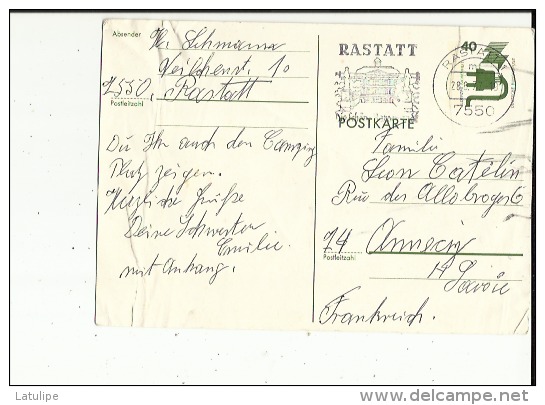 Absender
Lehmann
10
7550 Rastatt
Postleitzahl
Du Ihr auch den Camping
Platz zeigen.
Herzliche Grüße
Deine Schwester
Emilie.
mit Anhang.
RASTATT
40
RASTATT
7550
POSTKARTE
Familie
Leon Catélin
Rue des Allobroges 6
74 Annecy
Postleitzahl
H Savoie
Frankreich.
© Latulipe
http://www.delcampe.net